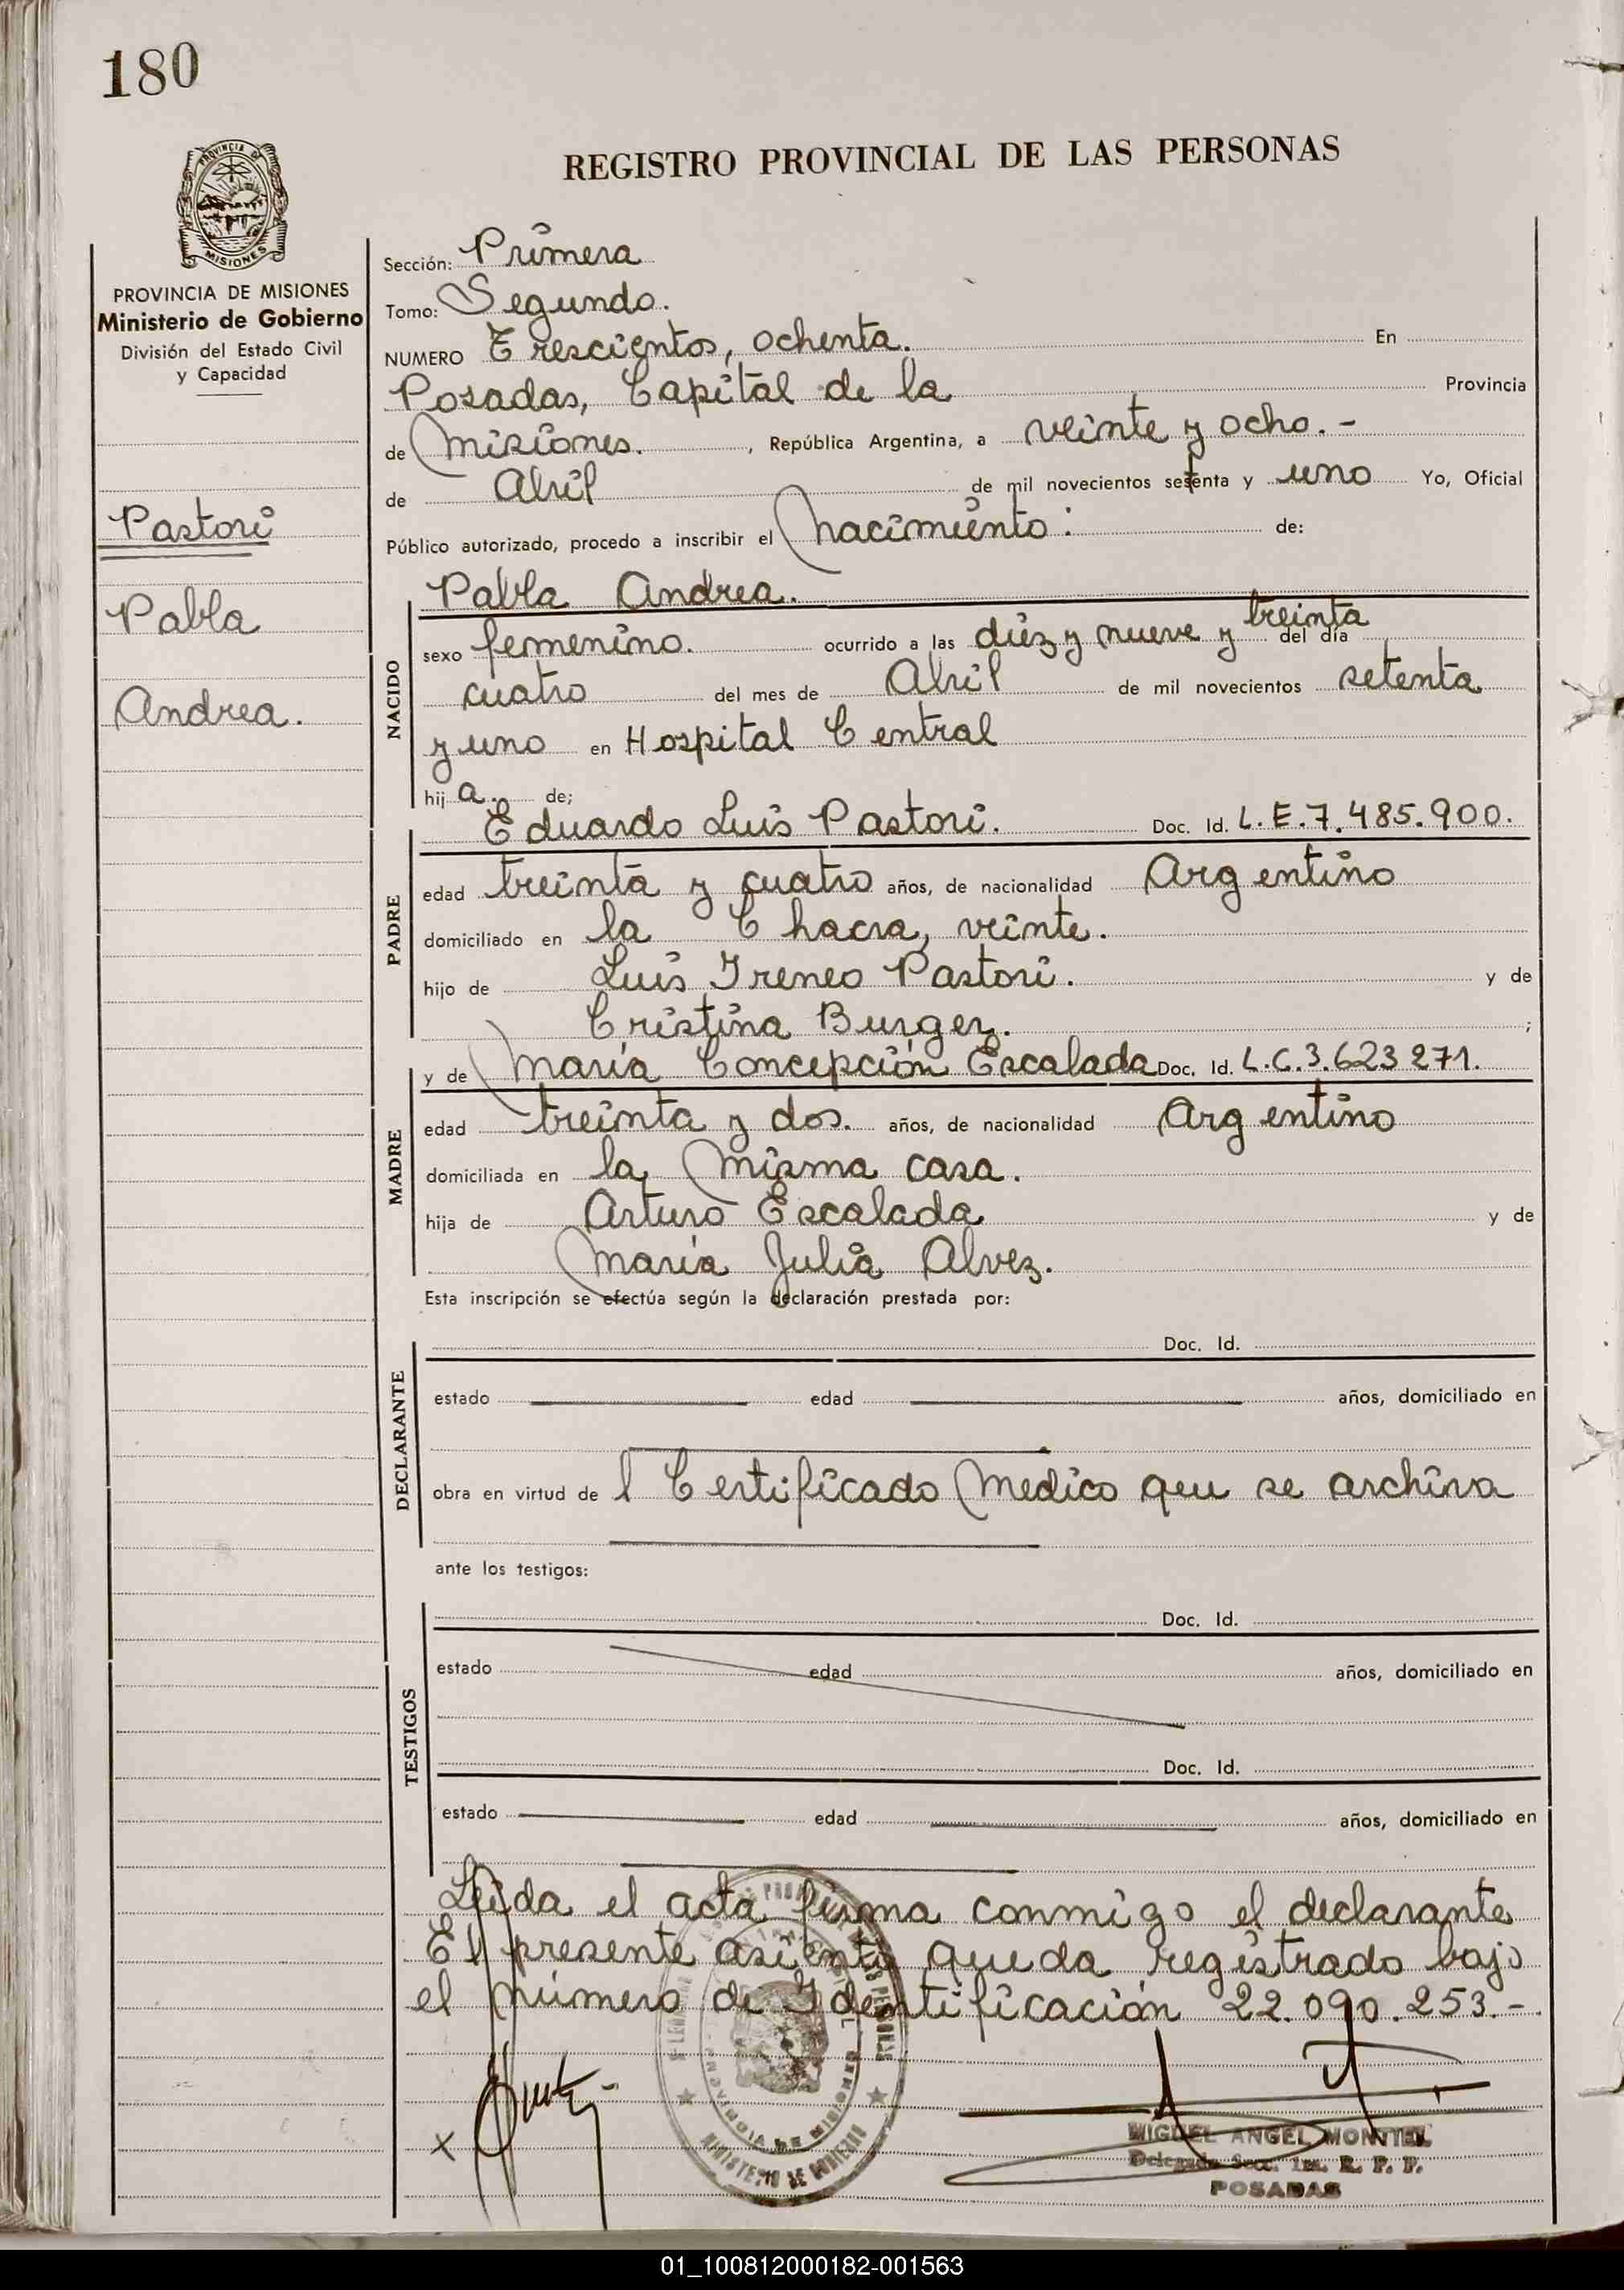 180
PROVINCIA DE
MISIONES
REGISTRO PROVINCIAL DE LAS PERSONAS
PROVINCIA DE MISIONES
Ministerio de Gobierno
División del Estado Civil
y Capacidad
Pastori
Pabla
Andrea.
Sección: Primera
Tomo: Segundo.
NUMERO Trescientos, ochenta. En
Posadas, Capital de la Provincia
de Misiones. , República Argentina, a veinte y ocho. -
de Abril de mil novecientos setenta y uno Yo, Oficial
Público autorizado, procedo a inscribir el nacimiento: de:
NACIDO
Pabla Andrea.
sexo femenino. ocurrido a las diez y nueve y treinta del día
cuatro del mes de Abril de mil novecientos setenta
y uno en Hospital Central
hij a. de;
PADRE
Eduardo Luis Pastori. Doc. Id. L.E.7.485.900.
edad treinta y cuatro años, de nacionalidad Argentino
domiciliado en la Chacra, veinte.
hijo de Luis Ireneo Pastori. y de
Cristina Burger. ;
MADRE
y de María Concepción Escalada Doc. Id. L.C.3.623.271.
edad treinta y dos. años, de nacionalidad Argentino
domiciliada en la misma casa.
hija de Arturo Escalada y de
María Julia Alvez.
Esta inscripción se efectúa según la declaración prestada por:
DECLARANTE
Doc. Id.
estado edad años, domiciliado en
obra en virtud de l Certificado Medico qeu se archiva
ante los testigos:
TESTIGOS
Doc. Id.
estado edad años, domiciliado en
Doc. Id.
estado edad años, domiciliado en
Leida el acta firma conmigo el declarante
El presente asiento queda registrado bajo
el número de Identificación 22.090.253.-
x
MINISTERIO DE GOBIERNO
PROVINCIA DE MISIONES
MIGUEL ANGEL
Delegado Secc. 1ra. R. P. P.
POSADAS
01_100812000182-001563